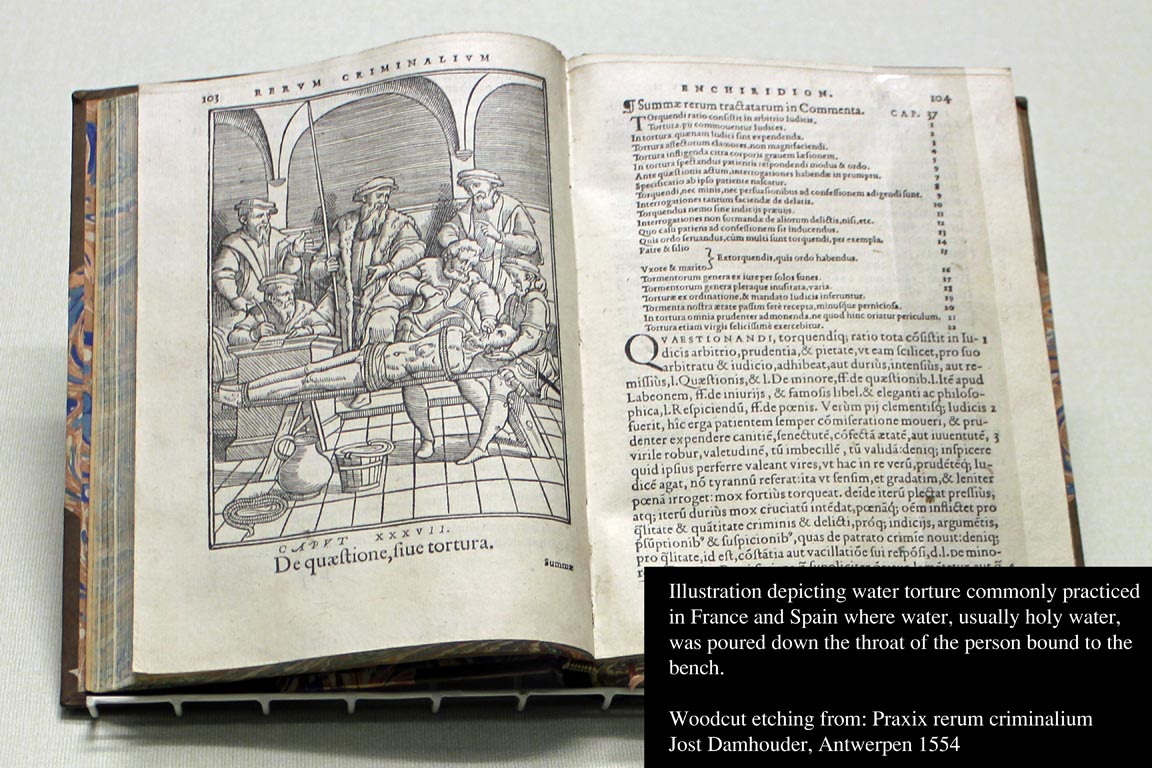 103 RERVM CRIMINALIVM
CAPVT XXXVII.
De quæstione, siue tortura.
Summæ
ENCHIRIDION. 104
¶ Summæ rerum tractatarum in Commenta. CAP. 37
TOrquendi ratio consistit in arbitrio Iudicis. 1
Tortura pij commouentur Iudices. 2
In tortura quænam Iudici sint expendenda. 3
Tortura affectorum clamores, non magnifaciendi. 4
Tortura infligenda citra corporis grauem læsionem. 5
In tortura spectandus patientis respondendi modus & ordo. 6
Ante quæstionis actum, interrogationes habendæ in promptu. 7
Specificatio ab ipso patiente nascatur. 8
Torquendi, nec minis, nec persuasionibus ad confessionem adigendi sunt. 9
Interrogationes tantum faciendæ de delatis. 10
Torquendus nemo sine indicijs præuijs. 11
Interrogationes non formandæ de aliorum delictis, nisi, etc. 12
Quo casu patiens ad confessionem sit inducendus. 13
Quis ordo seruandus, cùm multi sunt torquendi, per exempla. 14
Patre & filio 15
} Extorquendis, quis ordo habendus.
Vxore & marito 16
Tormentorum genera ex iure per solos funes. 17
Tormentorum genera pleraque inusitata, varia. 18
Torturæ ex ordinatione, & mandato Iudicis inferuntur. 19
Tormenta nostra ætate passim ferè recepta, minusque perniciosa. 20
In tortura omnia prudenter admonenda, ne quod hinc oriatur periculum. 21
Tortura etiam virgis felicissimè exercebitur. 22
QVAESTIONANDI, torquendiq; ratio tota cõsistit in Iu- 1
dicis arbitrio, prudentia, & pietate, vt eam scilicet, pro suo
arbitratu & iudicio, adhibeat, aut durius, intensius, aut re-
missius, l. Quæstionis, & l. De minore, ff. de quæstionib. l. Ité apud
Labeonem, ff. de iniurijs, & famosis libel. & eleganti ac philoso-
phica, l. Respiciendũ, ff. de pœnis. Verùm pij clementisq; Iudicis 2
fuerit, hîc erga patientem semper cõmiseratione moueri, & pru-
denter expendere canitiẽ, senectutẽ, cõfectã ætatẽ, aut iuuentutẽ, 3
virile robur, valetudinẽ, tũ imbecillẽ, tũ validã: deniq; inspicere
quid ipsius perferre valeant vires, vt hac in re verũ, prudẽtẽq; Iu-
dicẽ agat, nõ tyrannũ referat: ita vt sensim, et gradatim, & leniter
pœnã irroget: mox fortiùs torqueat. deide iterũ plectat pressiùs,
atq; iterũ duriùs mox cruciatũ intẽdat, pœnãq; oẽm inflictet pro
q̃litate & quãtitate criminis & delicti, próq; indicijs, argumẽtis,
p̃sũptionib⁹ & suspicionib⁹, quas de patrato crimine nouit: deniq;
pro q̃litate, id est, cõstãtia aut vacillatiõe sui respõsi, d. l. De mino-
Illustration depicting water torture commonly practiced
in France and Spain where water, usually holy water,
was poured down the throat of the person bound to the
bench.
Woodcut etching from: Praxix rerum criminalium
Jost Damhouder, Antwerpen 1554